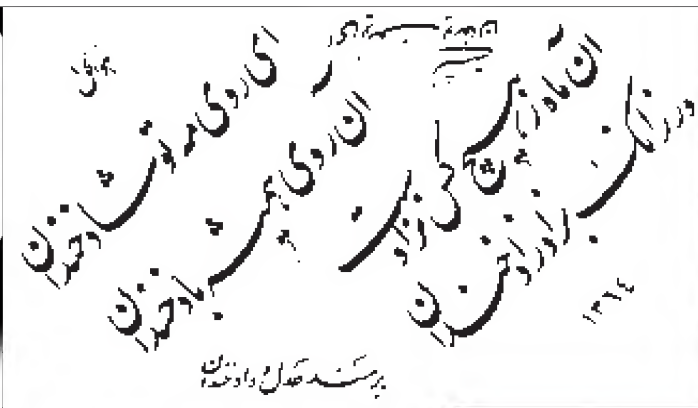 ای روی مه تو شاد خندان
آن روی همیشه باد خندان
آن ماه ز هیچ کس نزادست
ور زانک بزاد زاد خندان
۱۳۶۴
بر مسند عدل و داد خندان